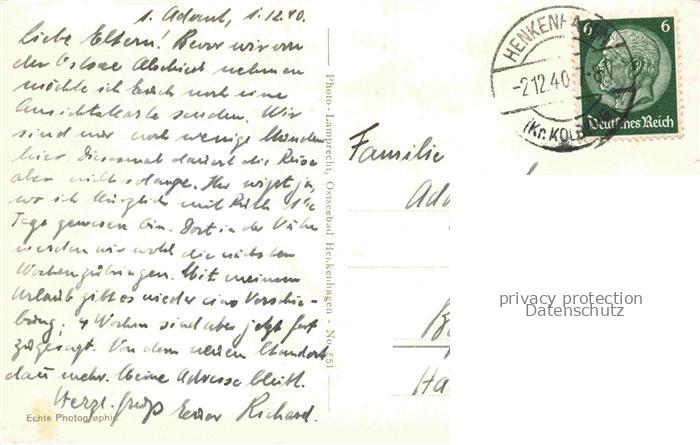 1. Advent, 1.12.40.
Liebe Eltern! Bevor wir von
der Ostsee Abschied nehmen
möchte ich Euch noch eine
Ansichtskarte senden. Wir
sind nur noch wenige Stunden
hier. Diesesmal dauert die Reise
aber nicht solange. Ihr wißt ja,
wo ich kürzlich mit Ruth
Tage gewesen bin. Dort in der Nähe
werden wir wohl die nächsten
Wochen zubringen. Mit meinem
Urlaub gibt es wieder eine Verschie-
bung; 4 Wochen sind aber jetzt fest
zugesagt. Von dem neuen Standort
dann mehr. Meine Adresse bleibt.
Herzl. Grüße Euer Richard.
Echte Photographie
Photo-Lamprecht, Ostseebad Henkenhagen - No. 551
Familie
HENKENHAGEN
-2.12.40
(Kr. KOLB
6 6
Deutsches Reich
privacy protection
Datenschutz